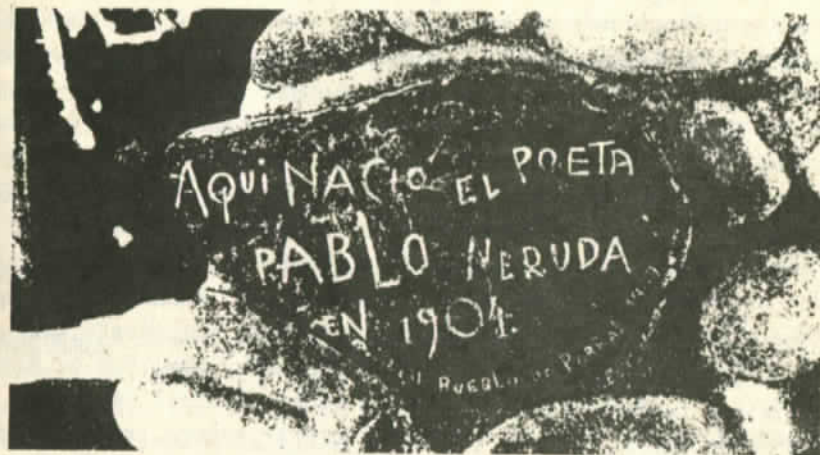 AQUI NACIO EL POETA
PABLO NERUDA
EN 1904.
PUEBLO DE PARRAL